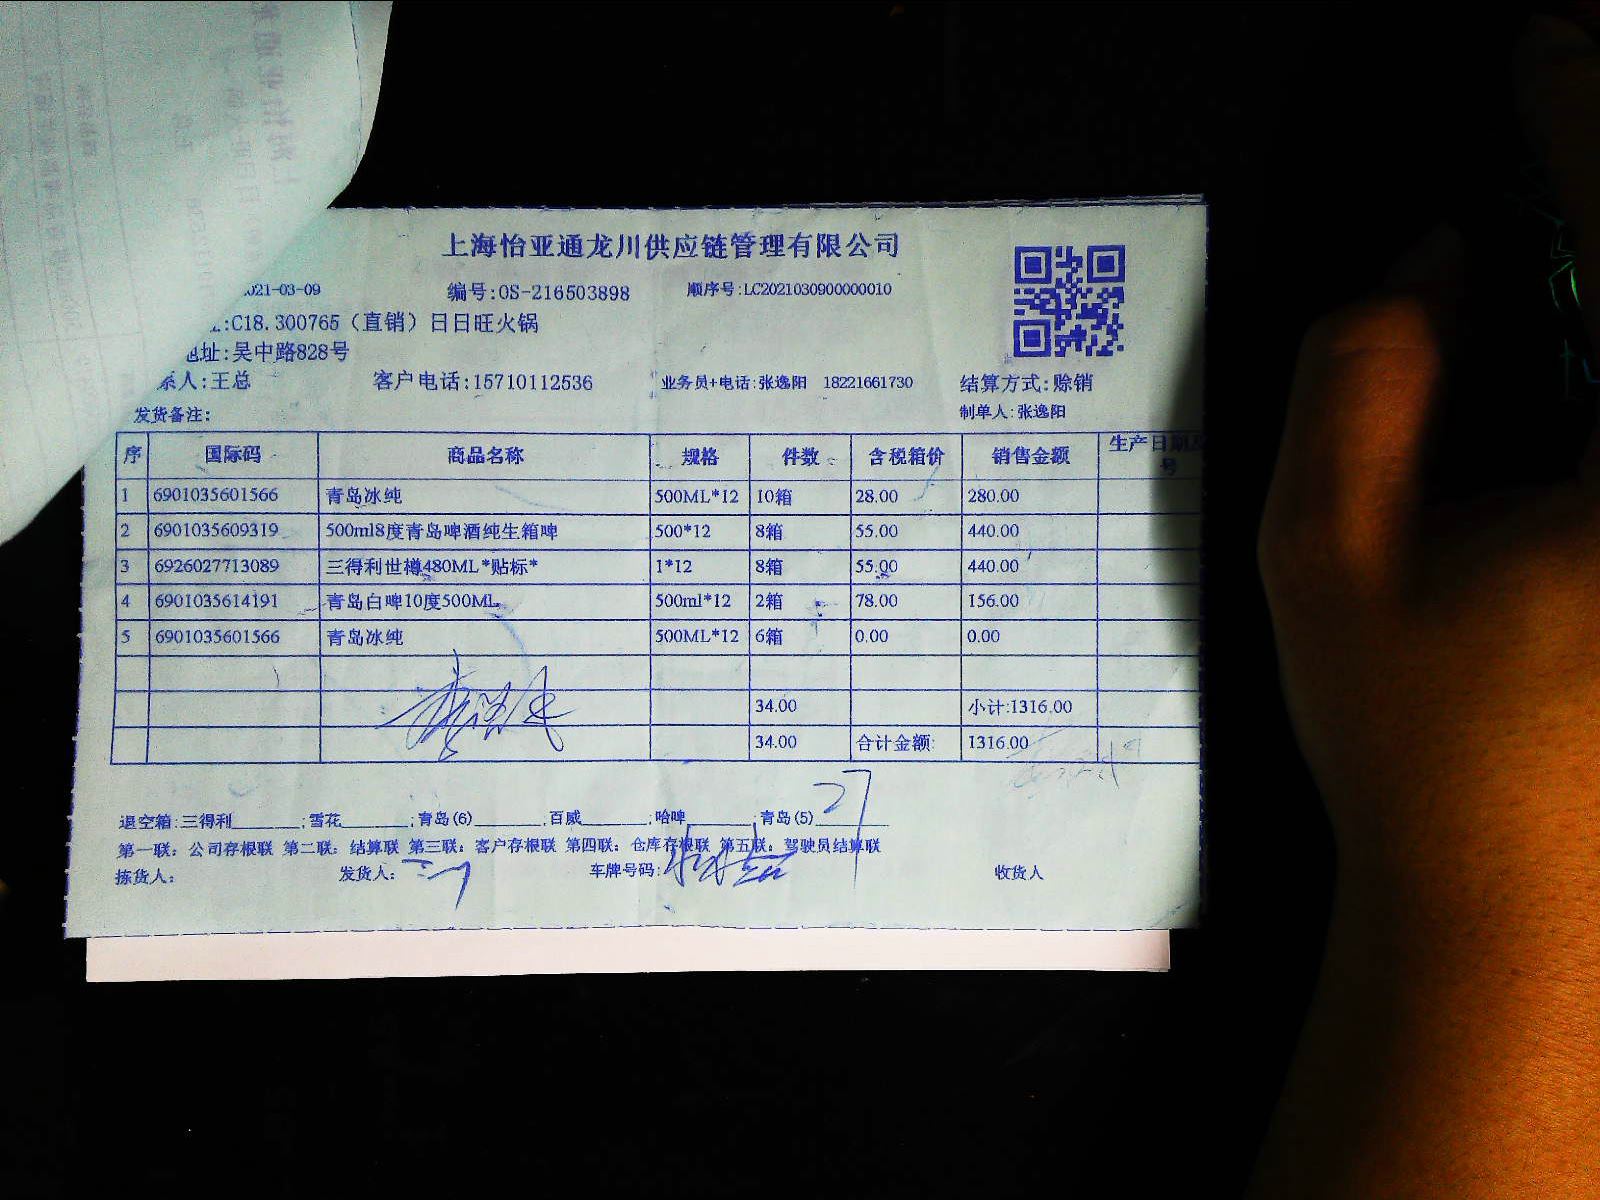 上海怡亚通龙川供应链管理有限公司
021-03-09 编号:OS-216503898 顺序号:LC2021030900000010
:C18.300765（直销）日日旺火锅
地址:吴中路828号
系人:王总 客户电话:15710112536 业务员+电话:张逸阳 18221661730 结算方式:赊销
发货备注: 制单人:张逸阳
序 国际码 商品名称 规格 件数 含税箱价 销售金额 生产日期及
号
1 6901035601566 青岛冰纯 500ML*12 10箱 28.00 280.00
2 6901035609319 500ml8度青岛啤酒纯生箱啤 500*12 8箱 55.00 440.00
3 6926027713089 三得利世樽480ML*贴标* 1*12 8箱 55.00 440.00
4 6901035614191 青岛白啤10度500ML 500ml*12 2箱 78.00 156.00
5 6901035601566 青岛冰纯 500ML*12 6箱 0.00 0.00
34.00 小计:1316.00
34.00 合计金额: 1316.00
退空箱:三得利______;雪花______;青岛(6)______,百威______,哈啤______;青岛(5)______ 27
第一联：公司存根联 第二联：结算联 第三联：客户存根联 第四联：仓库存根联 第五联：驾驶员结算联
拣货人: 发货人: 车牌号码: 收货人